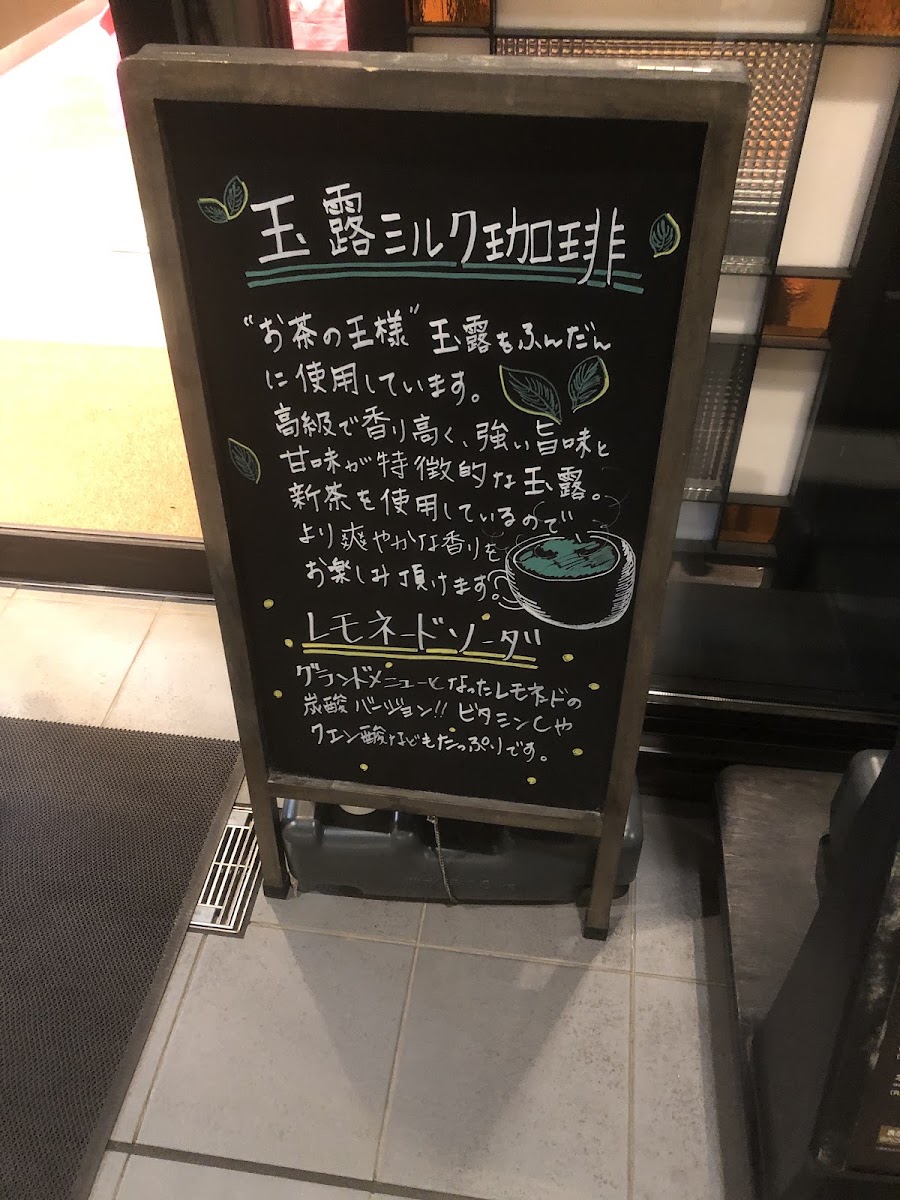 玉露ミルク珈琲
"お茶の王様" 玉露をふんだん
に使用しています。
高級で香り高く、強い旨味と
甘味が特徴的な玉露。
新茶を使用しているので
より爽やかな香りを
お楽しみ頂けます。
レモネードソーダ
グランドメニューとなったレモネードの
炭酸バージョン!! ビタミンCや
クエン酸などもたっぷりです。